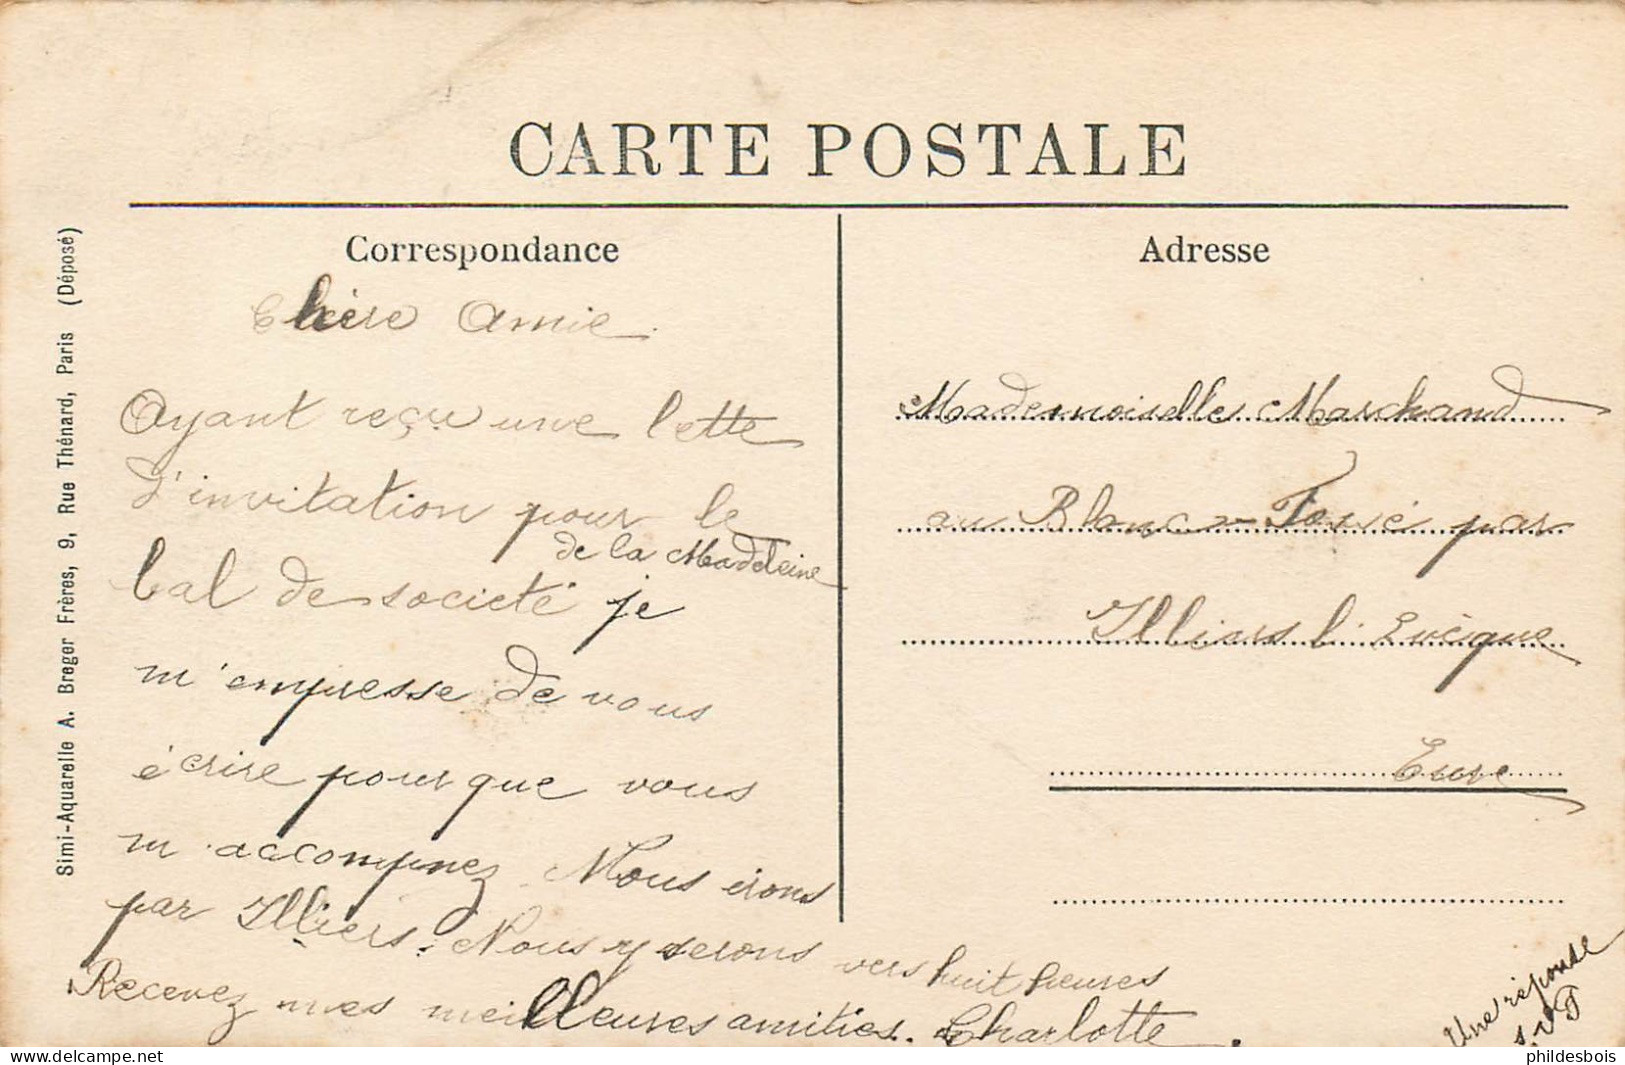 CARTE POSTALE
Correspondance
Chère Amie.
Ayant reçu une lette
d'invitation pour le
de la Madeleine
bal de société je
m'empresse de vous
écrire pour que vous
m'accompnez. Nous irons
par Illiers. Nous y serons vers huit heures
Recevez mes meilleures amitiés. Charlotte.
Adresse
Mademoiselle Marchand
au Blanc-Fossé par
Illiers l'Evèque
Eure
Une réponse
s.v.P
Simi-Aquarelle A. Breger Frères, 9, Rue Thénard, Paris (Déposé)
phildesbois